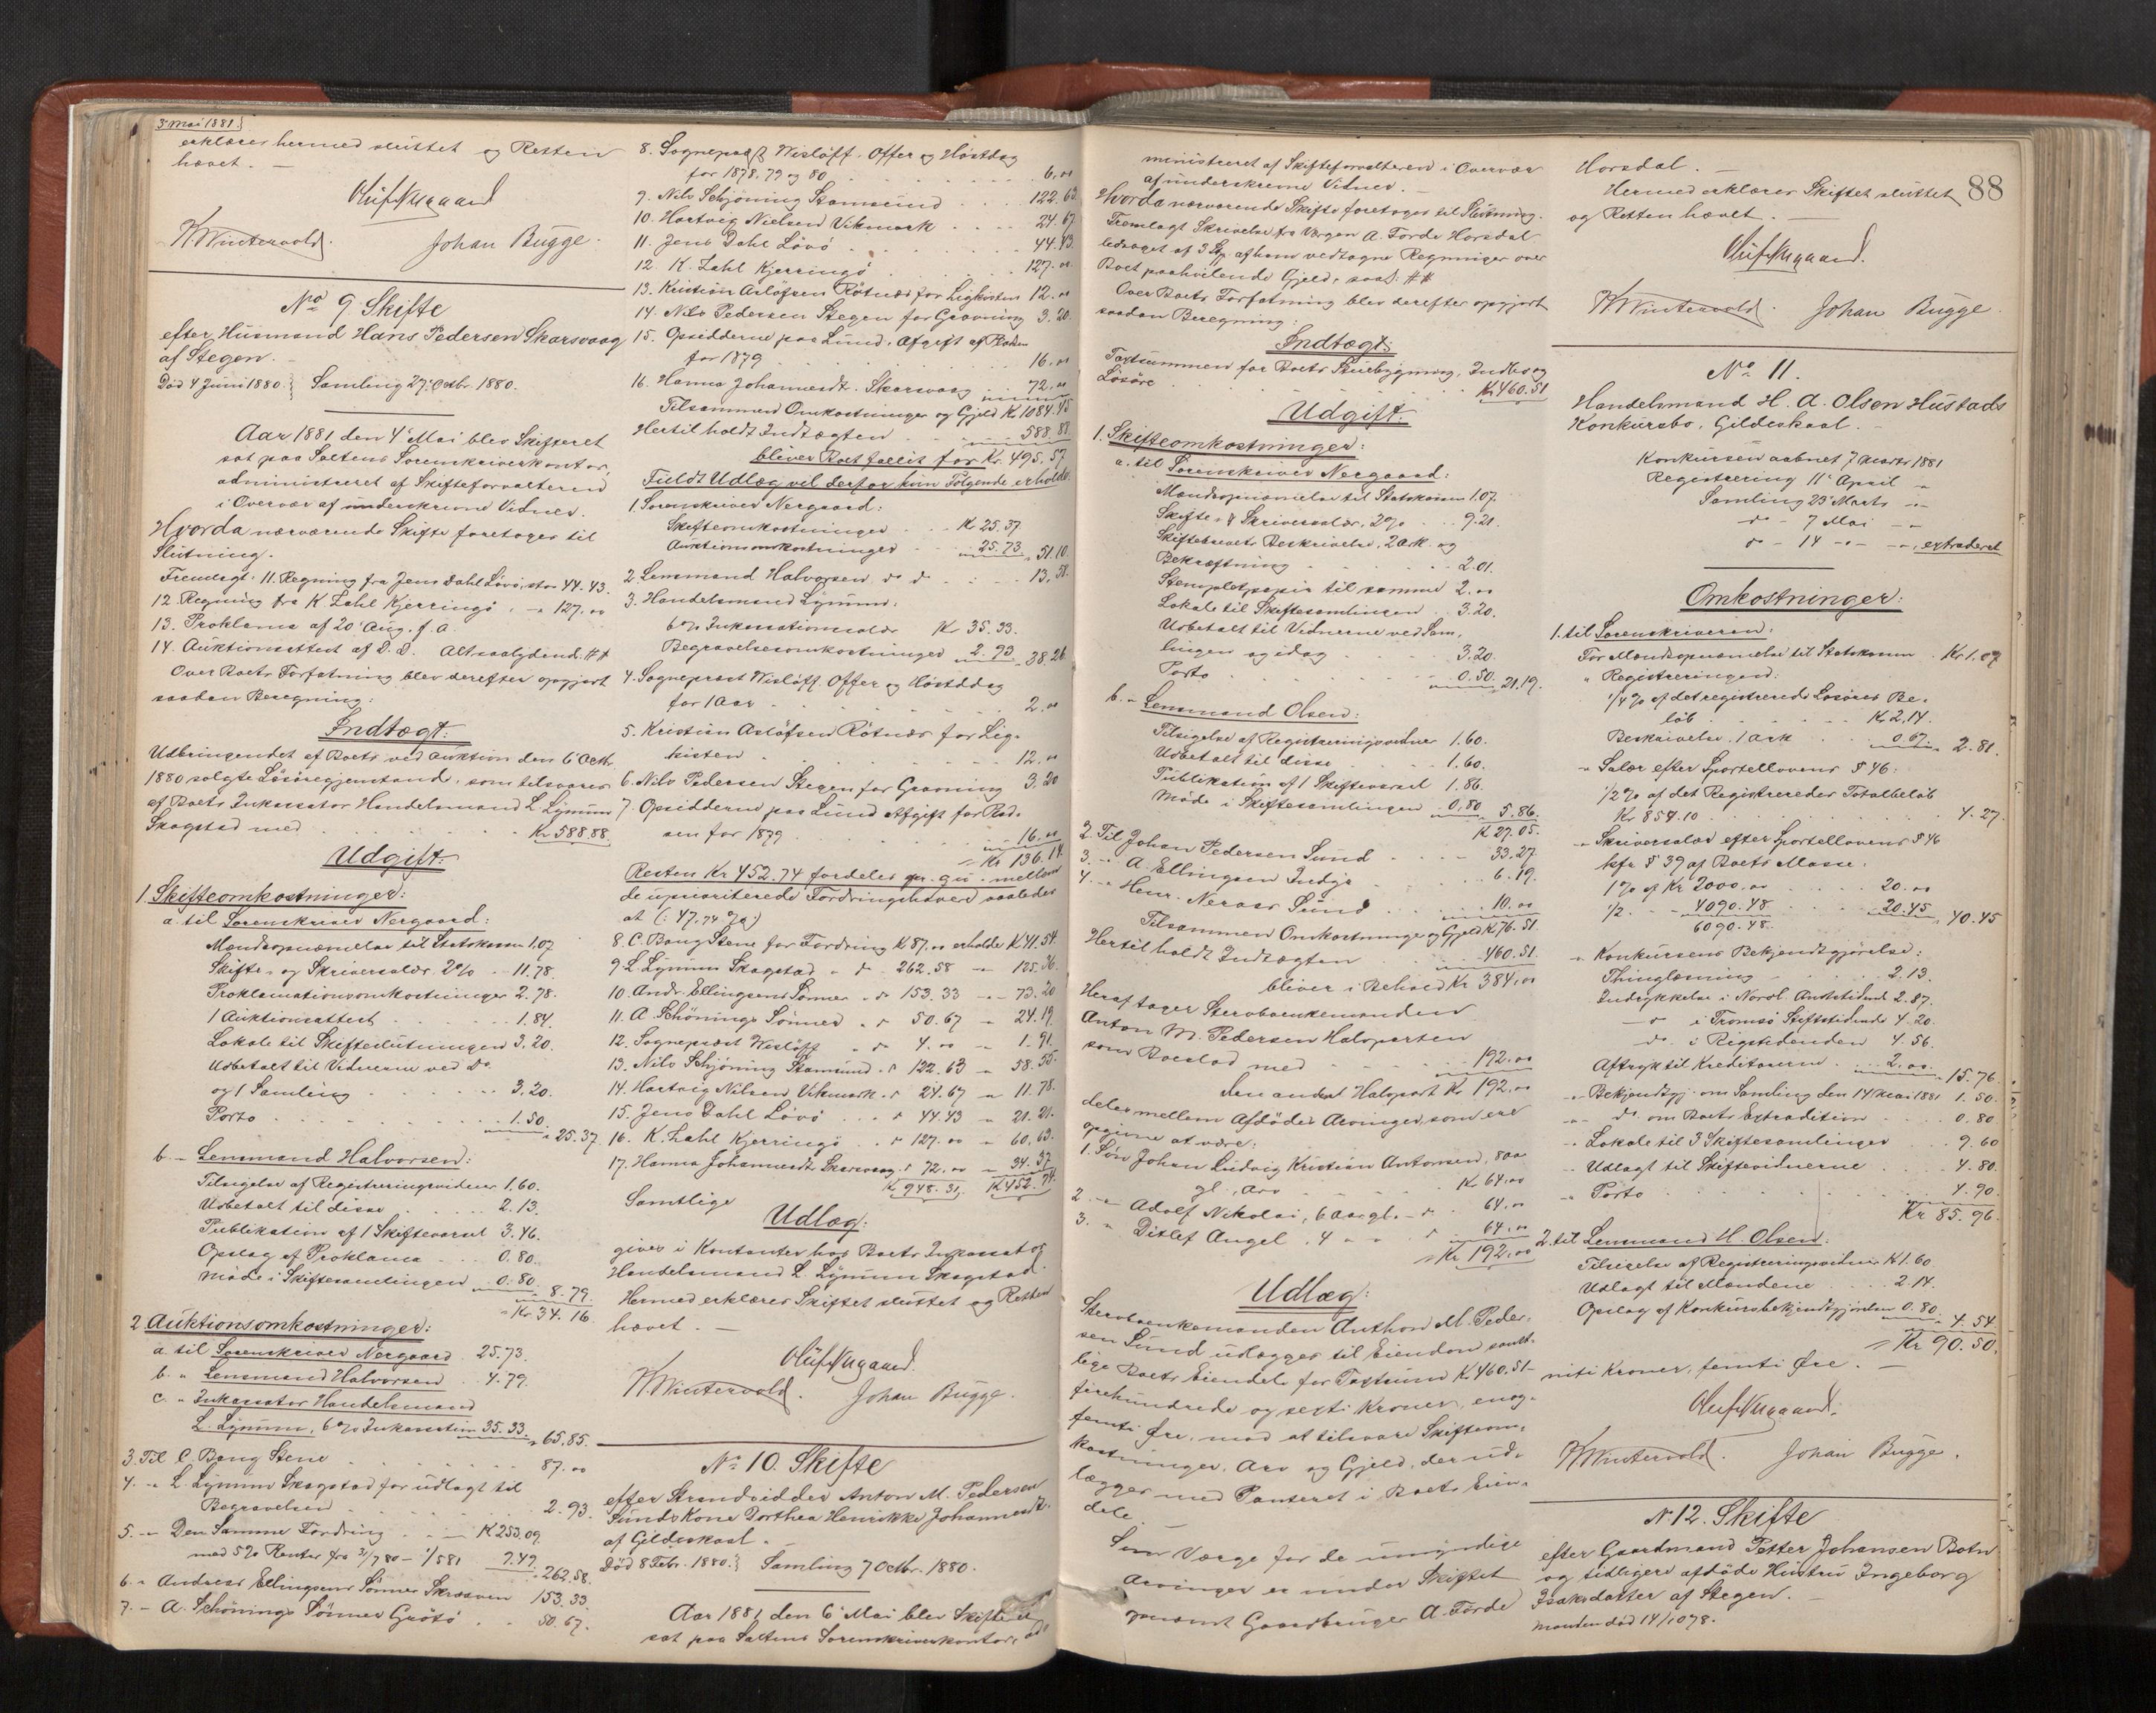 3 Mai 1881.}
erklæres hermed sluttet og Retten
hævet. —
Oluf Nergaard
K. Wintervold. Johan Bugge.
No 9 Skifte
efter Husmand Hans Pedersen Skarsvaag
af Stegen.
Død 4 Juni 1880.} Samling 27' Octbr. 1880.
Aar 1881 den 4' Mai blev Skifteret
sat paa Saltens Sorenskriverkontor,
administreret af Skifteforvalteren
i Overvær af underskrevne Vidner.
Hvorda nærværende Skifte foretoges til
Slutning.
Fremlagt: 11. Regning fra Jens Dahl Løvø, stor 44.43.
12. Regning fra K. Zahl Kjerringø, -"- 127.00
13. Proklama af 20' Aug. f. a.
14. Auktionsattest af D. D. Altsaalydende ##
Over Boets Forfatning blev derefter opgjort
saadan Beregning:
Indtægt:
Udbringendet af Boets ved Auktion den 6' Octb.
1880 solgte Løsøregjenstande, som tilsvares
af Boets Inkassator Handelsmand L. Lynum
Skagstad med . . . Kr. 588.88.
Udgift:
1. Skifteomkostninger:
a. til Sorenskriver Nergaard:
Mændsopnævnelse til Statskassen 1.07
Skifte- og Skriversalær 2% -- 11.78.
Proklamationsomkostninger 2.78.
1 Auktionsattest . . . 1.84.
Lokale til Skifteslutningen 3.20.
Udbetalt til Vidnerne ved Do
og 1 Samling . . . 3.20.
Porto . . . 1.50. " 25.37.
b. - Lensmand Halvorsen:
Tilsigelse af Registreringsvidner 1.60.
Udbetalt til disse . . . 2.13.
Publikation af 1 Skiftevarsel 3.46.
Opslag af Proklama . . . 0.80.
Møde i Skiftesamlingen . . . 0.80. " 8.79.
= Kr. 34.16.
2. Auktionsomkostninger:
a. til Sorenskriver Nergaard . 25.73.
b. " Lensmand Halvorsen . 4.79.
c. " Inkassator Handelsmand
L. Lynum, 6% Inkassation 35.33. " 65.85.
3. Til C. Bang Stene . . . 87.00
4. -"- L. Lynum Skagstad for udlagt til
Begravelsen . . . 2.93.
5. -"- Den Samme Fordring . . . K 253.09
med 5% Renter fra 31/7 80 - 1/5 81 9.49. 262.58.
6. " Andreas Ellingsens Sønner Skraaven 153.33.
7. - A. Schönings Sønner Grøtø . . 50.67.
8. Sognepræst Wisløff, Offer og Høstdag
for 1878, 79 og 80 . . . 6.00
9. Nils Schjøning Stamsund . . . 122.63
10. Hartvig Nielsen Vikmark . . . 24.67
11. Jens Dahl Løvø . . . 44.43.
12. K. Zahl Kjerringø . . . 127.00
13. Kristian Asløfsen Røtnæs for Ligkisten 12.00
14. Nils Pedersen Stegen for Gravning 3.20.
15. Opsidderne paa Lund, Afgift af Pladsen
for 1879 . . . 16.00
16. Hanna Johannesdt. Skarsvaag . . 72.00
Tilsammen Omkostninger og Gjeld Kr 1084.45
Hertil holdt Indtægten . . . 588.88.
bliver Boet fallit for Kr. 495.57
Fuldt Udlæg vil derfor kun Følgende erholde:
1. Sorenskriver Nergaard:
Skifteomkostninger . . Kr 25.37.
Auktionsomkostninger . . 25.73. " 51.10.
2. Lensmand Halvorsen do do . . . 13.58.
3. Handelsmand Lynum:
6% Inkassationssalær Kr 35.33.
Begravelsesomkostninger 2.93 " 38.26
4. Sognepræst Wisløff. Offer og Høstdag
for 1 Aar . . . 2.00
5. Kristian Asløfsen Røtnæs for Lig-
kisten . . . 12.00
6. Nils Pedersen Stegen for Gravning 3.20
7. Opsidderne paa Lund Afgift for Plad-
sen for 1879 . . . 16.00
= Kr 136.14.
Resten Kr 452.74 fordeles mellem
de uprioriterede Fordringshavere saaledes
at (: 47.74 %:)
8. C. Bang Stene for Fordring K 87.00 erholder K 41.54.
9. L. Lynum Skagstad " do 262.58 -"- 125.36.
10. Andr. Ellingsens Sønner -"- do 153.33 -"- 73.20
11. A. Schönings Sønner " do 50.67 -"- 24.19.
12. Sognepræst Wisløff " do 4.00 " 1.91.
13. Nils Schjøning Stamsund " do 122.63 " 58.55.
14. Hartvig Nilsen Vikmark " do 24.67 " 11.78.
15. Jens Dahl Løvø . . do 44.43 " 21.21.
16. K. Zahl Kjerringø . . do 127.00 " 60.63.
17. Hanna Johannesdt Skarsvaag do 72.00 " 34.37
Kr 948.31. K 452.74.
Samtlige
Udlæg:
gives i Kontanter hos Boets Inkassator
Handelsmand L. Lynum Skagstad.
Hermed erklæres Skiftet sluttet og Retten
hævet. —
Oluf Nergaard.
K. Wintervold. Johan Bugge.
No 10. Skifte
efter Strandsidder Anton M. Pedersen
Sunds Kone Dorthea Henrikke Johannesdt.
af Gildeskaal.
Død 8 Febr. 1880.} Samling 7 Octbr. 1880.
Aar 1881, den 6' Mai blev Skifteret
sat paa Saltens Sorenskriverkontor, ad-
ministreret af Skifteforvalteren i Overvær
af underskrevne Vidner. —
Hvorda nærværende Skifte foretoges til Slutning.
Fremlagt Skrivelse fra Værgen A. Førde Horsdal
ledsaget af 3 Stk. af ham vedtagne Regninger over
Boet paahvilende Gjeld, saal. ##
Over Boets Forfatning blev derefter opgjort
saadan Beregning:
Indtægt:
Taxtsummen for Boets Stuebygning, Indbo og
Løsøre . . . Kr 460.51
Udgift:
1. Skifteomkostninger:
a. til Sorenskriver Nergaard:
Mændsopnævnelse til Statskassen 1.07.
Skifte- & Skriversalær, 2% . . 9.21.
Skiftebrevets Beskrivelse, 2 Ark og
Bekræftning . . . 2.01.
Stempletpapir til samme 2.00
Lokale til Skiftesamlingen . 3.20.
Udbetalt til Vidnerne ved Sam-
lingen og idag . . . 3.20.
Porto . . . 0.50. " 21.19.
b. " Lensmand Olsen:
Tilsigelse af Registreringsvidner 1.60.
Udbetalt til disse . . . 1.60.
Publikation af 1 Skiftevarsel 1.86.
Møde i Skiftesamlingen . 0.80 5.86.
K 27.05.
2. Til Johan Pedersen Sund . . . 33.27.
3. -"- A. Ellingsen Indyr . . . 6.19.
4. -"- Henr. Neraas Sund . . . 10.00
Tilsammen Omkostninger og Gjeld K. 76.51.
Hertil holdt Indtægten . . . 460.51.
bliver i Behold Kr 384.00
Heraf tager Stervboenkemanden
Anton M. Pedersen Halvparten
som Boeslod med . . . 192.00
den anden Halvpart Kr 192.00
deles mellem Afdødes Arvinger, som ere
opgivne at være:
1. Søn Johan Ludvig Kristian Antonsen, 8 aar
gl., Arv . . . Kr 64.00
2. -"- Adolf Nikolai, 6 aar gl. - do . 64.00
3. " Ditlef Angel, 4 " " do 64.00
= Kr 192.00
Udlæg:
Stervboenkemanden Anthon M. Peder-
sen Sund udlægges til Eiendom samt-
lige Boets Eiendele for Taxtsum K. 460.51 -
firehundrede og sexti Kroner, enog-
femti Øre, mod at tilsvare Skifteom-
kostninger, Arv og Gjeld, der ud-
lægges med Panteret i Boets Eien-
dele.
Som Værge for de umyndige
Arvinger er under Skiftet
opnævnt Gaardbruger A. Førde
Horsdal. —
Hermed erklæres Skiftet sluttet
og Retten hævet. —
88
Oluf Nergaard.
K. Wintervold. Johan Bugge.
No 11.
Handelsmand H. A. Olsen Hustads
Konkursbo, Gildeskaal. —
Konkursen aabnet 7 Marts 1881
Registrering 11' April "
Samling 23' Marts -"-
do - 7 Mai - "
do - 14 -"- -"-, extraderet
Omkostninger:
1. til Sorenskriveren:
For Mændsopnævnelse til Statskassen . Kr 1.07
" Registreringen:
1/4 % af det registrerede Løsøres Be-
løb . . . Kr 2.14.
Beskrivelse, 1 Ark . . 0.67. " 2.81.
" Salær efter Sportellovens § 46:
1/2 % af det Registreredes Totalbeløb
Kr 854.10 . . . 4.27.
" Skriversalær efter Sportellovens § 46
kfr. § 39 af Boets Masse:
1 % af Kr 2000.00 . . . 20.00
1/2 - - 4090.48 . . . 20.45 " 40.45
6090.48.
" Konkursens Bekjendtgjørelse:
Thinglæsning . . . 2.13.
Indrykkelse i Nordl. Amtstidende 2.87.
— do i Tromsø Stiftstidende 4.20.
— do i Rigstidenden 4.56.
Aftryk til Kreditorerne . . . 2.00. " 15.76
" Bekjendtgj. om Samling den 14 Mai 1881 1.50.
-"- do om Boets Extradition . . . 0.80
" Lokale til 3 Skiftesamlinger . . 9.60
" Udlagt til Skiftevidnerne . . . 4.80.
" Porto . . . 4.90.
Kr 85.96.
2. til Lensmand H. Olsen:
Tilsigelse af Registreringsvidner K 1.60.
Udlagt til Mændene . . . 2.14.
Opslag af Konkursbekjendtgjørelsen 0.80. " 4.54.
= Kr 90.50.
niti Kroner, femti Øre. —
Oluf Nergaard.
K. Wintervold. Johan Bugge.
No 12. Skifte
efter Gaardmand Petter Johansen Botn
og tidligere afdøde Hustru Ingeborg
Isaksdatter af Stegen. —
Manden død 14/10 78.